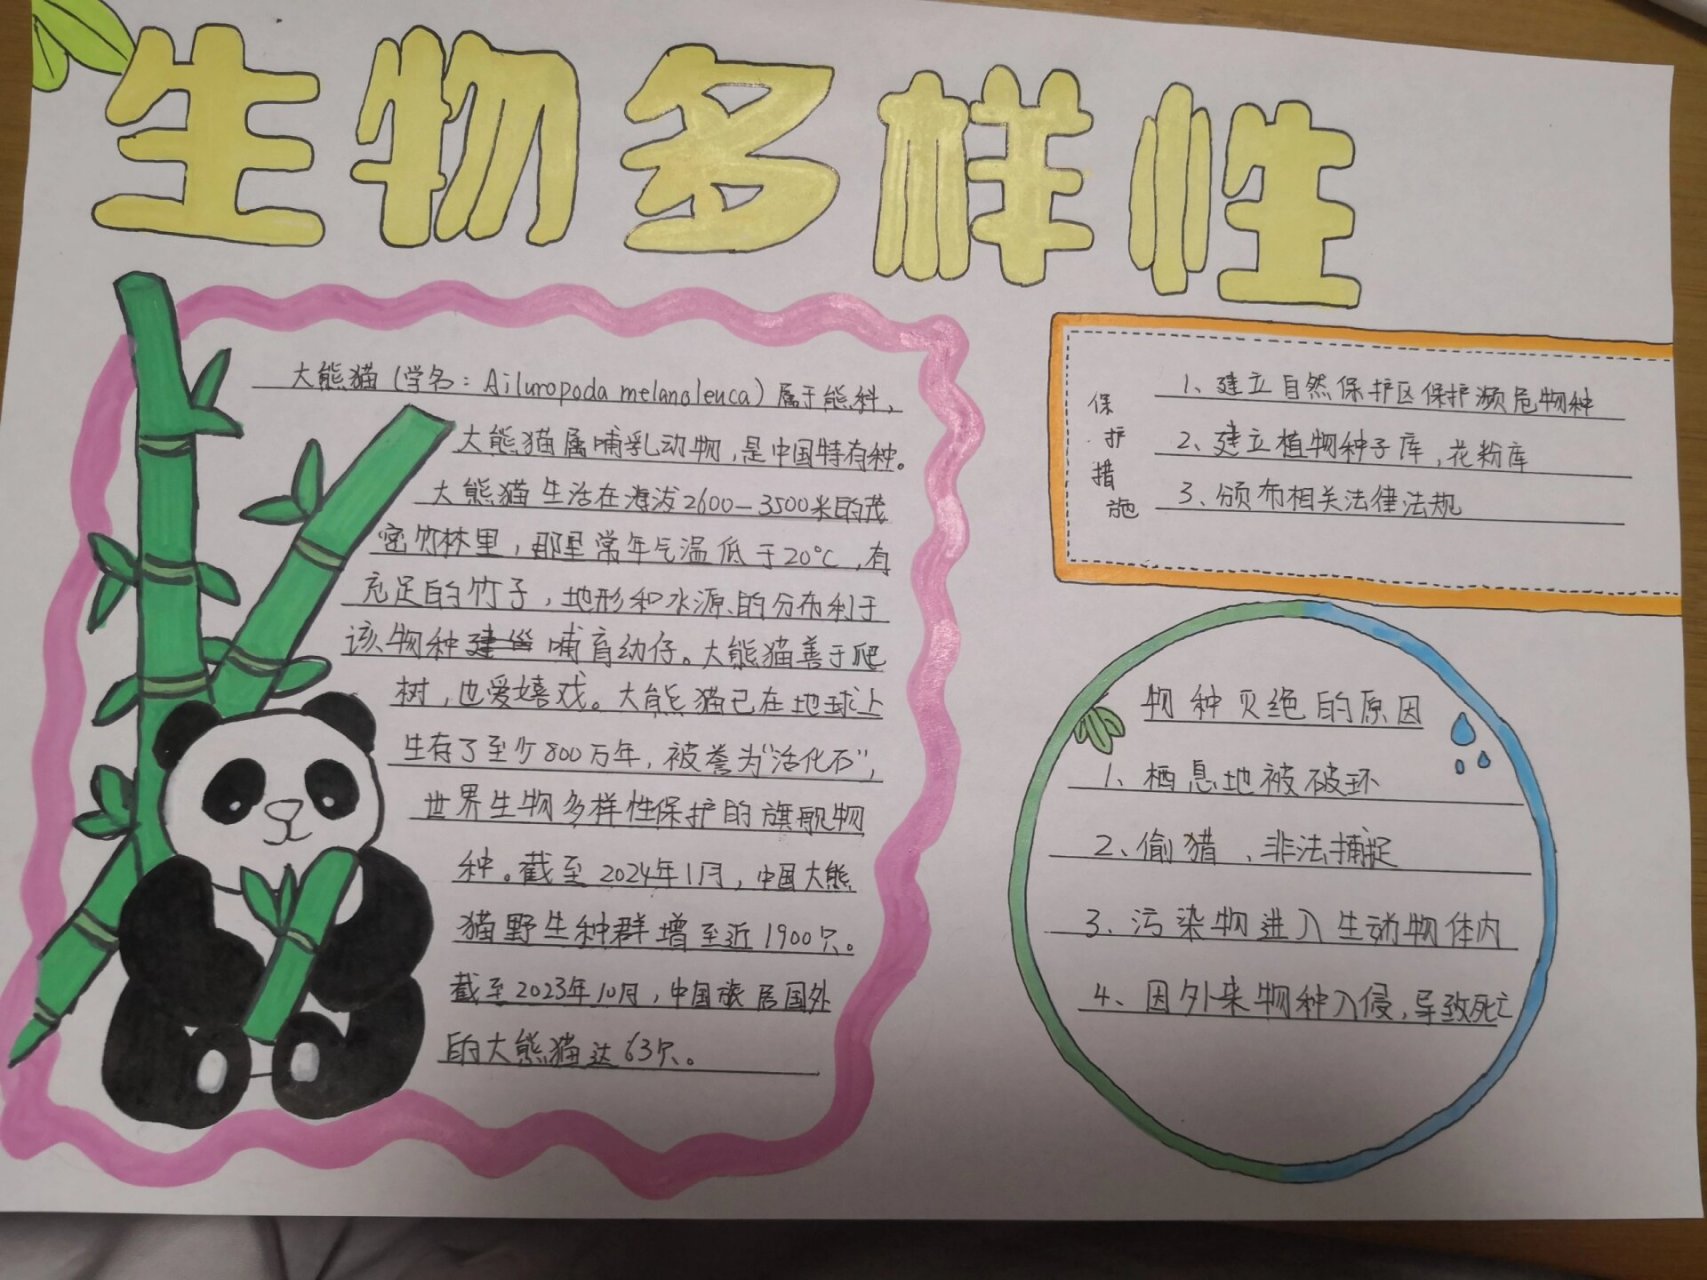 生物多样性
大熊猫(学名:Ailuropoda melanoleuca)属于熊科,
大熊猫属哺乳动物,是中国特有种。
大熊猫生活在海拔2600—3500米的茂
密竹林里,那里常年气温低于20℃,有
充足的竹子,地形和水源的分布利于
该物种建巢哺育幼仔。大熊猫善于爬
树,也爱嬉戏。大熊猫已在地球上
生存了至少800万年,被誉为“活化石”,
世界生物多样性保护的旗舰物
种。截至2024年1月,中国大熊
猫野生种群增至近1900只。
截至2023年10月,中国旅居国外
的大熊猫达63只。
保护措施
1、建立自然保护区保护濒危物种
2、建立植物种子库,花粉库
3、颁布相关法律法规
物种灭绝的原因
1、栖息地被破环
2、偷猎、非法捕捉
3、污染物进入生动物体内
4、因外来物种入侵,导致死亡